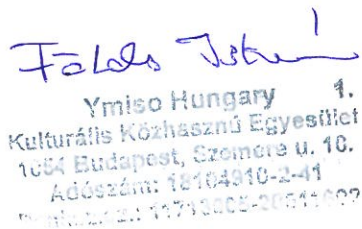 Földes István
Ymiso Hungary 1.
Kulturális Közhasznú Egyesület
Budapest, Szemere u. 10.
Adószám: 18104910-2-41